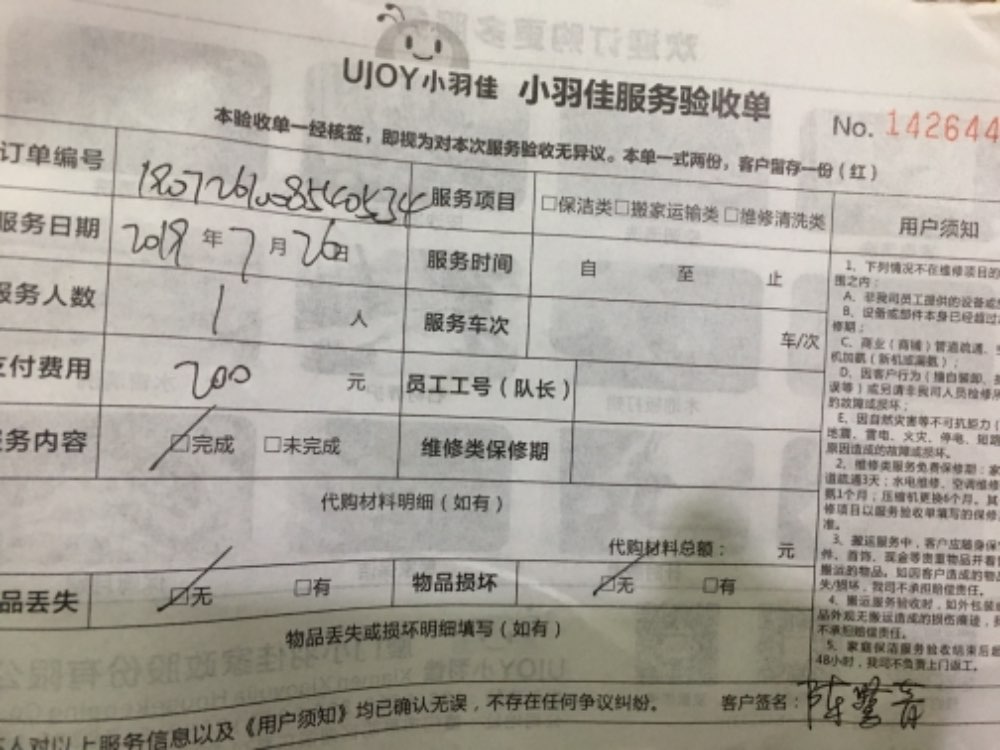 UJOY小羽佳 小羽佳服务验收单
No. 142644
本验收单一经核签，即视为对本次服务验收无异议。本单一式两份，客户留存一份（红）
订单编号
服务项目 □保洁类□搬家运输类 □维修清洗类
用户须知
服务日期 2018 年 7 月 26日
服务时间 自 至 止
服务人数 1 人
服务车次 车/次
支付费用 200 元
员工工号（队长）
服务内容 □完成 □未完成
维修类保修期
代购材料明细（如有）
代购材料总额： 元
品丢失 □无 □有
物品损坏 □无 □有
物品丢失或损坏明细填写（如有）
人对以上服务信息以及《用户须知》均已确认无误，不存在任何争议纠纷。
客户签名：
1、下列情况不在维修项目的
围之内：
A、非我司员工提供的设备或
B、设备或部件本身已经超过
修期；
C、商业（商铺）管道疏通、
机加氨（新机或漏氨）；
D、因客户行为（擅自装卸、
误等）或另请非我司人员检修
的故障或损坏；
E、因自然灾害等不可抗力（
地震、雷电、火灾、停电、短路
原因造成的故障或损坏。
2、维修类服务免费保修期：家
道疏通3天；水电维修、空调维修
氨1个月；压缩机更换6个月。其
修项目以服务验收单填写的保修
准。
3、搬运服务中，客户应随身保
件、首饰、现金等贵重物品并看
搬运的物品。如因客户造成的物
失/损坏，我司不承担赔偿责任。
4、搬运服务验收时，如外包装
品外观无搬运造成的损伤痕迹，我
不承担赔偿责任。
5、家庭保洁服务验收结束后超
48小时，我司不负责上门返工。